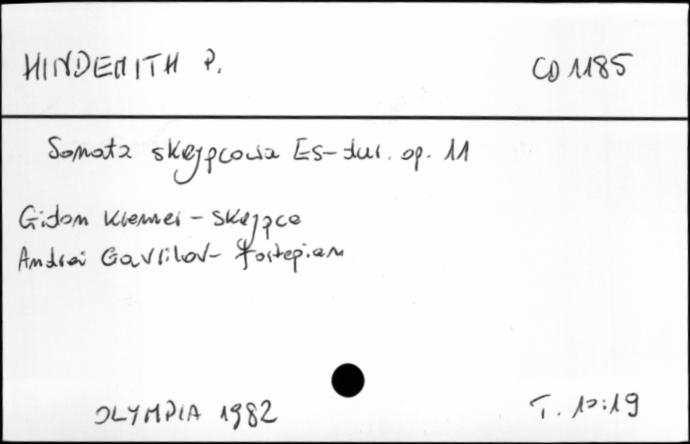 HINDEMITH P. CD 1185
Sonata skrzypcowa Es-dur. op. 11
Gidon Kremer - skrzypce
Andrei Gavrilov - fortepian
OLYMPIA 1982 T. 10:19